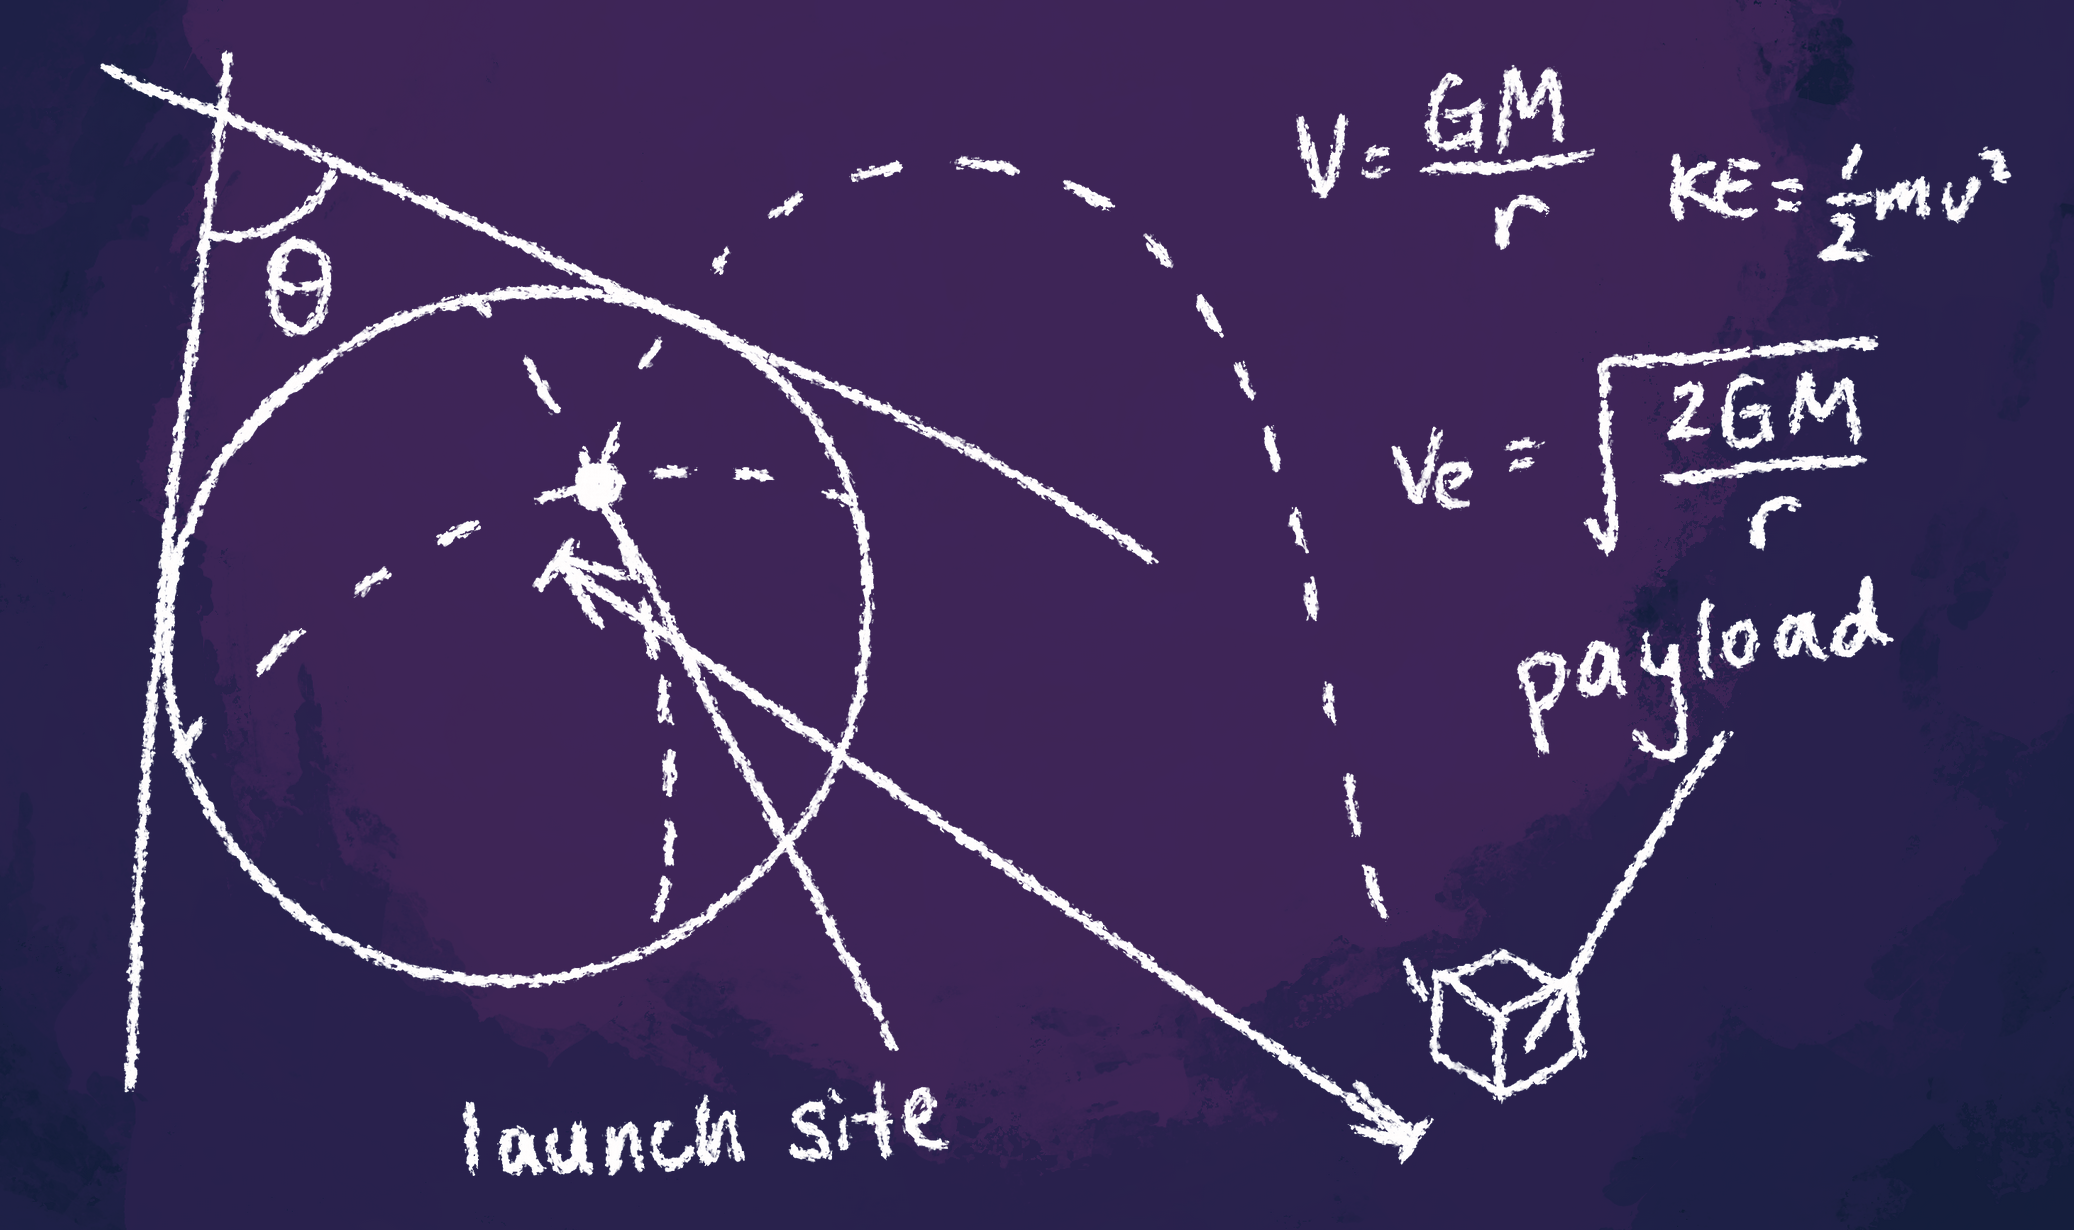 V = GM/r
KE = 1/2 mv²
Ve = √(2GM/r)
θ
payload
launch site